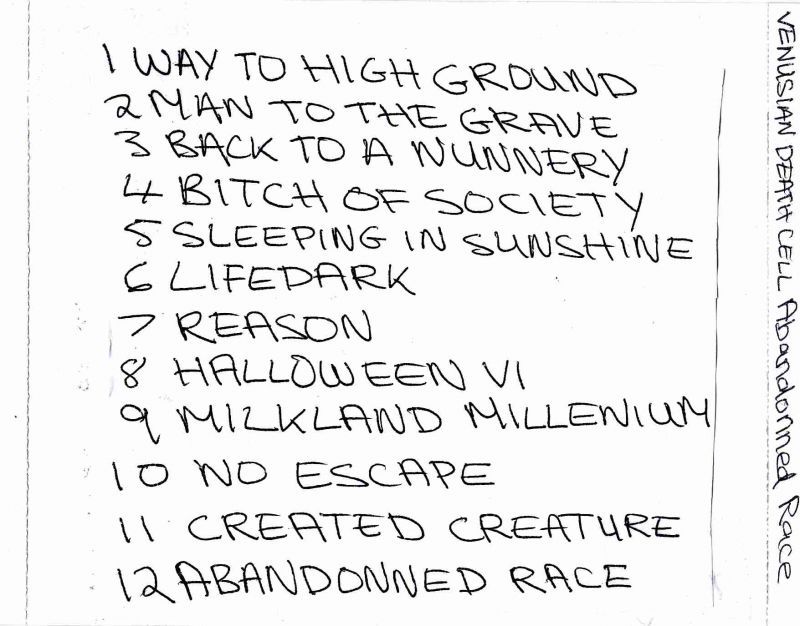 1 WAY TO HIGH GROUND
2 MAN TO THE GRAVE
3 BACK TO A NUNNERY
4 BITCH OF SOCIETY
5 SLEEPING IN SUNSHINE
6 LIFEDARK
7 REASON
8 HALLOWEEN VI
9 MILKLAND MILLENIUM
10 NO ESCAPE
11 CREATED CREATURE
12 ABANDONNED RACE
VENUSIAN DEATH CELL Abandonned Race